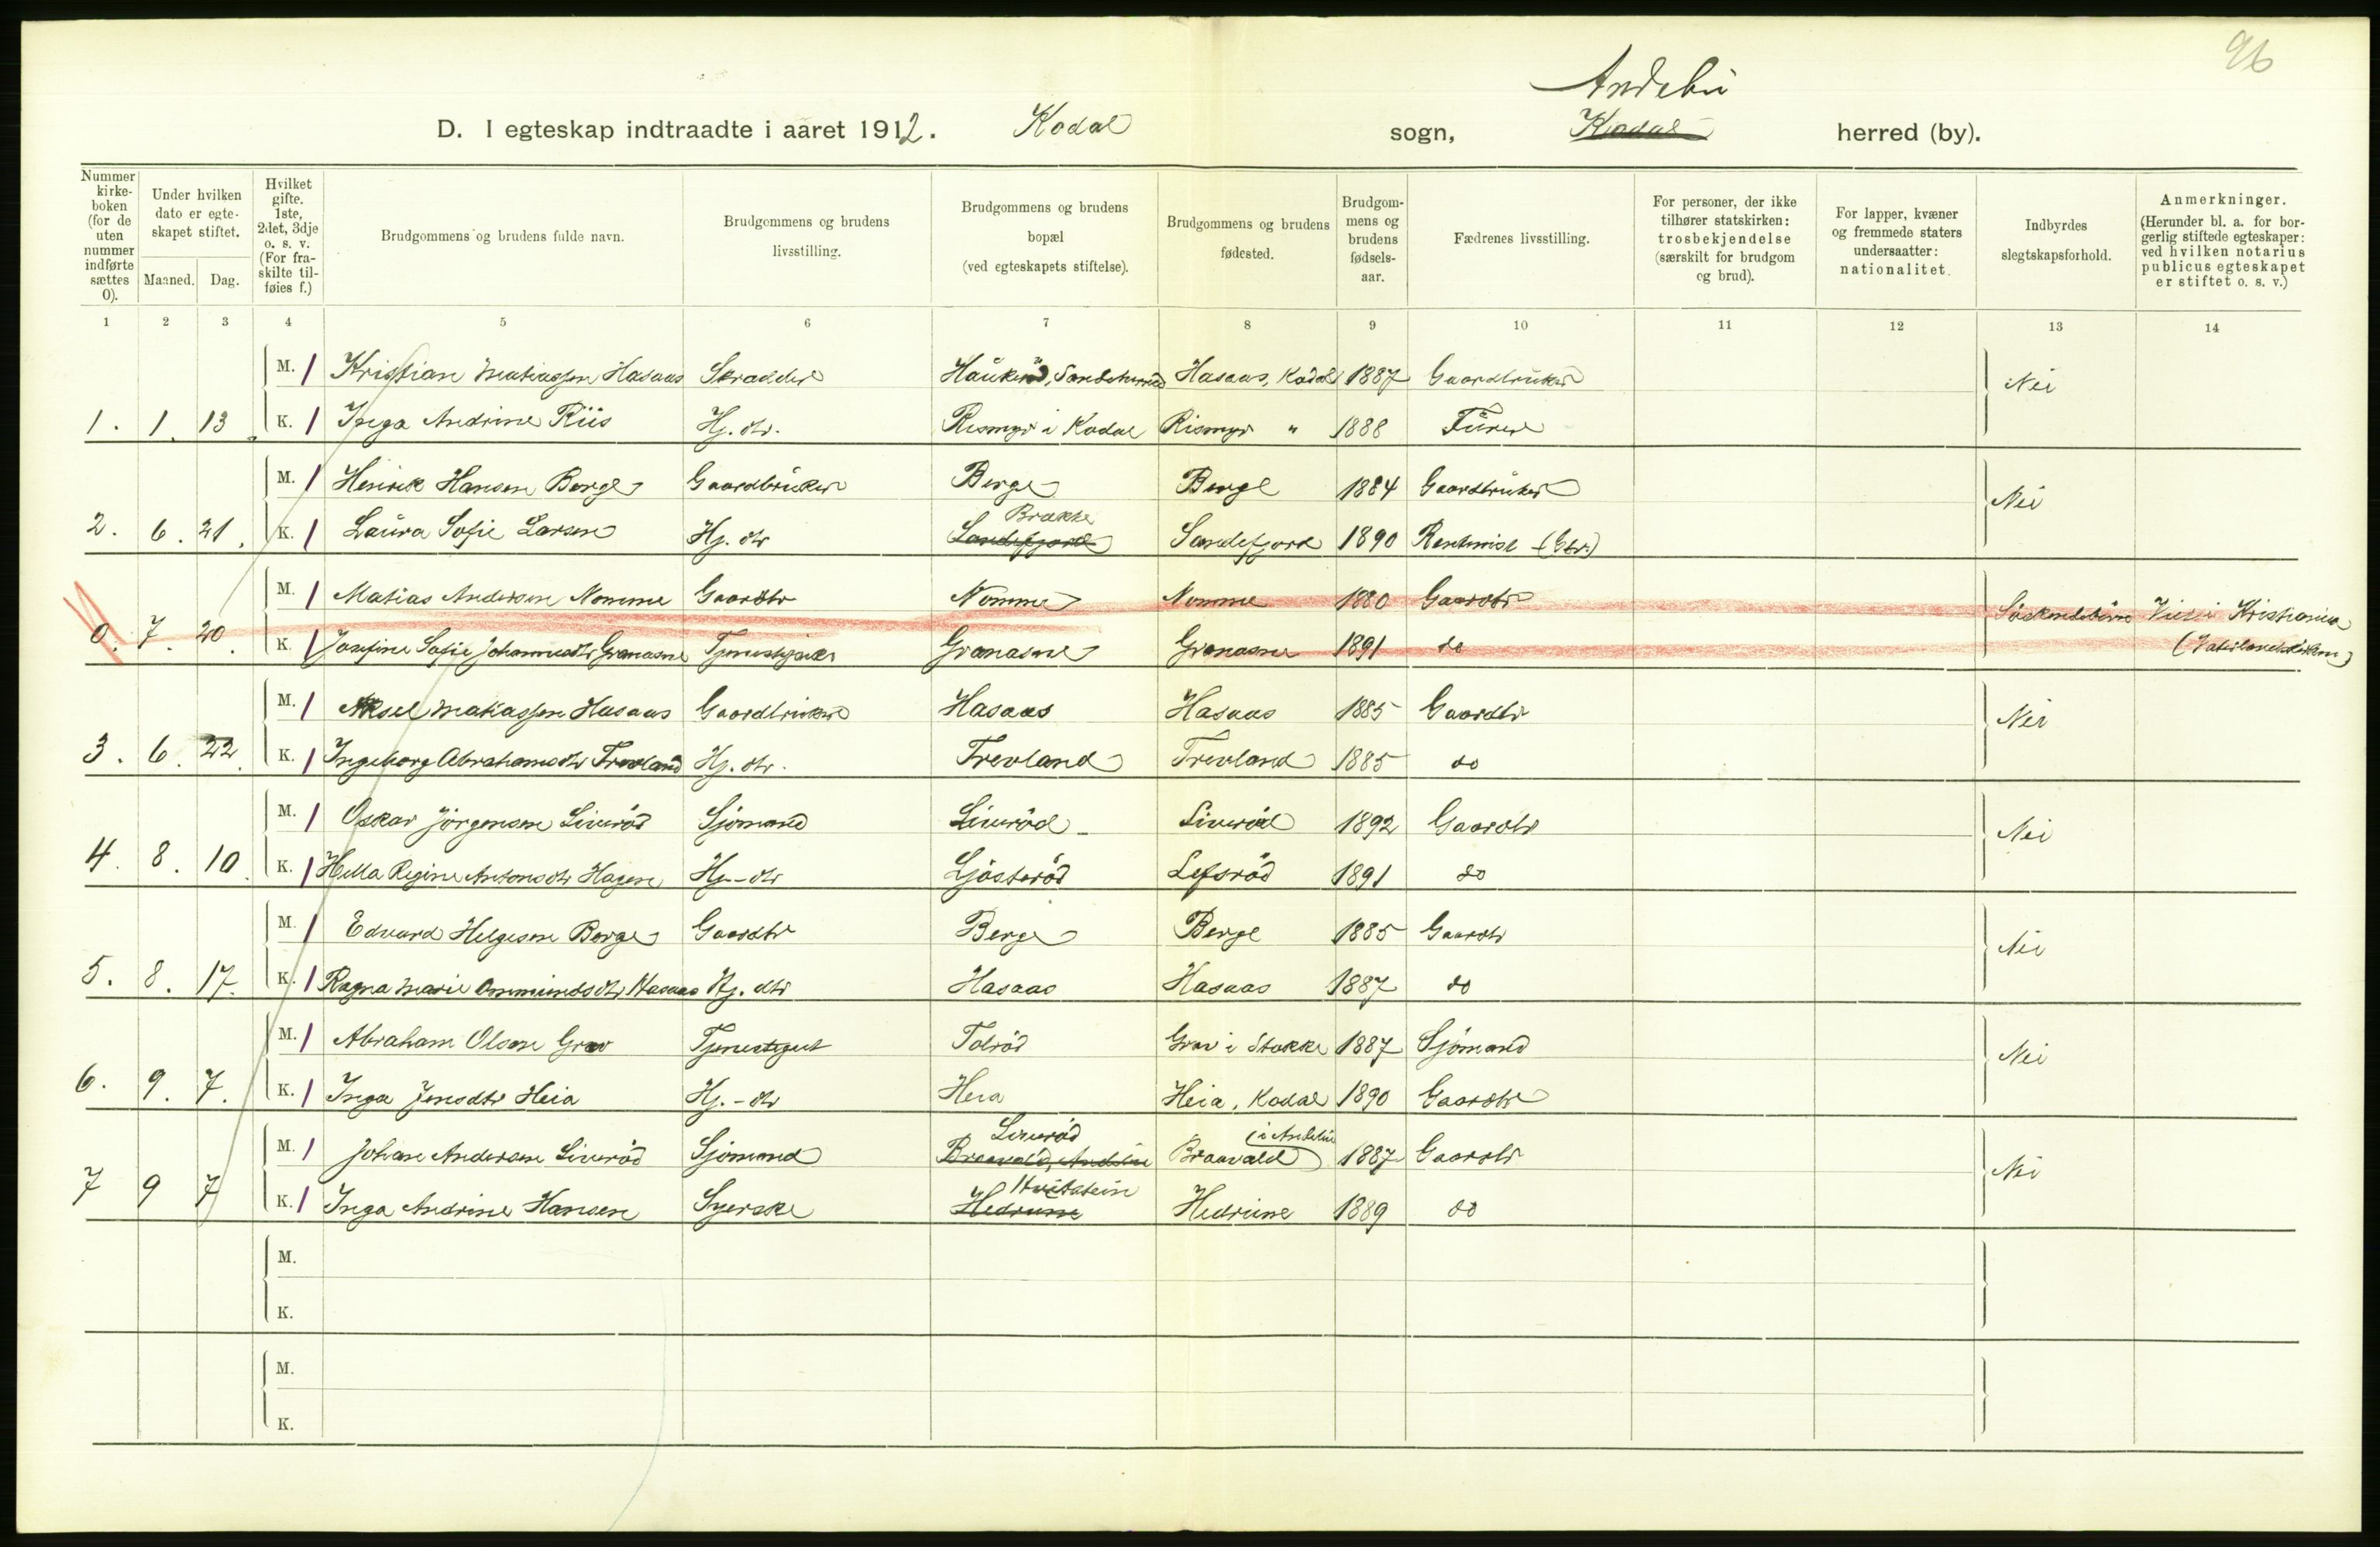 96
Andebu
D. I egteskap indtraadte i aaret 1912. Kodal sogn, Kodal herred (by).
Nummer kirke-boken (for de uten nummer indførte sættes 0). | Under hvilken dato er egte-skapet stiftet. Maaned. Dag. | Hvilket gifte. 1ste, 2det, 3dje o. s. v. (For fra-skilte til-føies f.) | Brudgommens og brudens fulde navn. | Brudgommens og brudens livsstilling. | Brudgommens og brudens bopæl (ved egteskapets stiftelse). | Brudgommens og brudens fødested. | Brudgom-mens og brudens fødsels-aar. | Fædrenes livsstilling. | For personer, der ikke tilhører statskirken: trosbekjendelse (særskilt for brudgom og brud). | For lapper, kvæner og fremmede staters undersaatter: nationalitet. | Indbyrdes slegtskapsforhold. | Anmerkninger. (Herunder bl. a. for bor-gerlig stiftede egteskaper: ved hvilken notarius publicus egteskapet er stiftet o. s. v.)
1 2 3 4 5 6 7 8 9 10 11 12 13 14
M. 1 Kristian Matiassen Hasaas Skradder Haukerød, Sandeherred Hasaas, Kodal 1887 Gaardbruker Nei
1. 1. 13. K. 1 Inga Andrine Riis Hj. dtr. Rismyr i Kodal Rismyr " 1888 Furer
M. 1 Henrik Hansen Berge Gaardbruker Berge Berge 1884 Gaardbruker Nei
Brække
2. 6. 21. K. 1 Laura Sofie Larsen Hj. dtr Sandefjord Sandefjord 1890 Rentenist (Gbr.)
M. 1 Matias Andersen Nomme Gaardbr Nomme Nomme 1880 Gaardbr Søskendebørn Viet i Kristiania
0. 7. 20. K. 1 Josefine Sofie Johannesdtr Granasne Tjenestepike Granasne Granasne 1891 do (Vaterlandskirken)
M. 1 Aksel Matiassen Hasaas Gaardbruker Hasaas Hasaas 1885 Gaardbr Nei
3. 6. 22. K. 1 Ingeborg Abrahamsdtr Trevland Hj. dtr. Trevland Trevland 1885 do
M. 1 Oskar Jörgensen Liverød Sjömand Liveröd Liveröd 1892 Gaardbr Nei
4. 8. 10. K. 1 Hella Regine Antonsdtr Hagen Hj.-dtr Gjösteröd Lefsröd 1891 do
M. 1 Edvard Helgesen Berge Gaardbr Berge Berge 1885 Gaardbr Nei
5. 8. 17. K. 1 Ragna Marie Ommundsdtr Hasaas Hj. dtr Hasaas Hasaas 1887 do
M. 1 Abraham Olsen Grav Tjenestegut Tolröd Grav i Stokke 1887 Sjömand Nei
6. 9. 7. K. 1 Inga Jensdtr Heia Hj.-dtr Heia Heia, Kodal 1890 Gaardbr
Liveröd (i Andebu
M. 1 Johan Andersen Liveröd Sjömand Braavald, Andebu Braavald 1887 Gaardbr Nei
Hvitstein
7 9 7 K. 1 Inga Andrine Hansen Syerske Hedrum Hedrum 1889 do
M.
K.
M.
K.